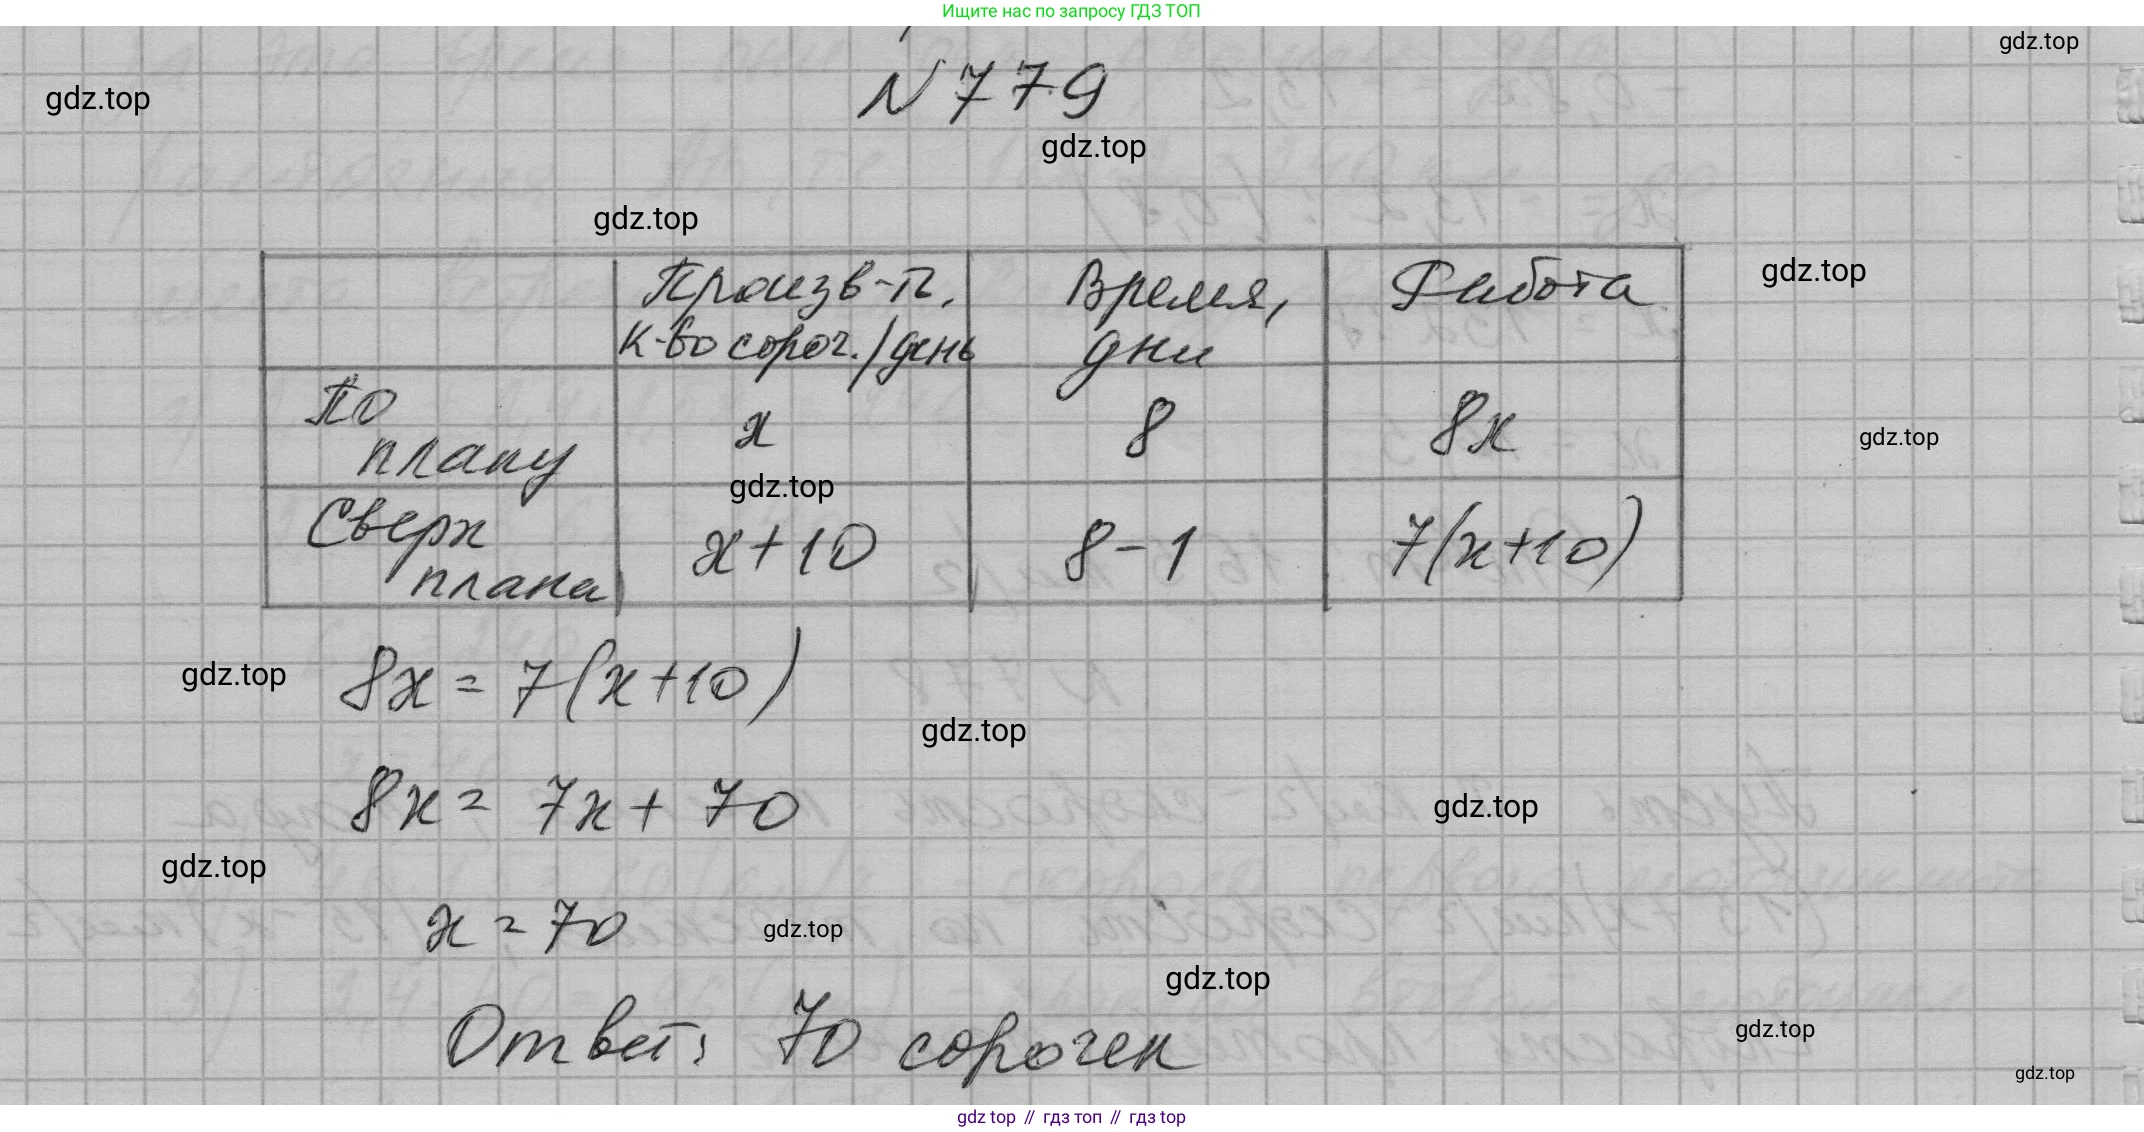 Ищите нас по запросу ГДЗ ТОП
gdz.top
gdz.top
N 779
gdz.top
gdz.top
gdz.top
Произв-ть, Время, Работа
к-во сороч./день дни
По плану x 8 8x
gdz.top
gdz.top
Сверх плана x+10 8-1 7(x+10)
8x = 7(x+10)
gdz.top
gdz.top
8x = 7x + 70
gdz.top
gdz.top
x = 70
gdz.top
gdz.top
Ответ: 70 сорочек
gdz.top
gdz.top
gdz top // гдз топ // гдз top